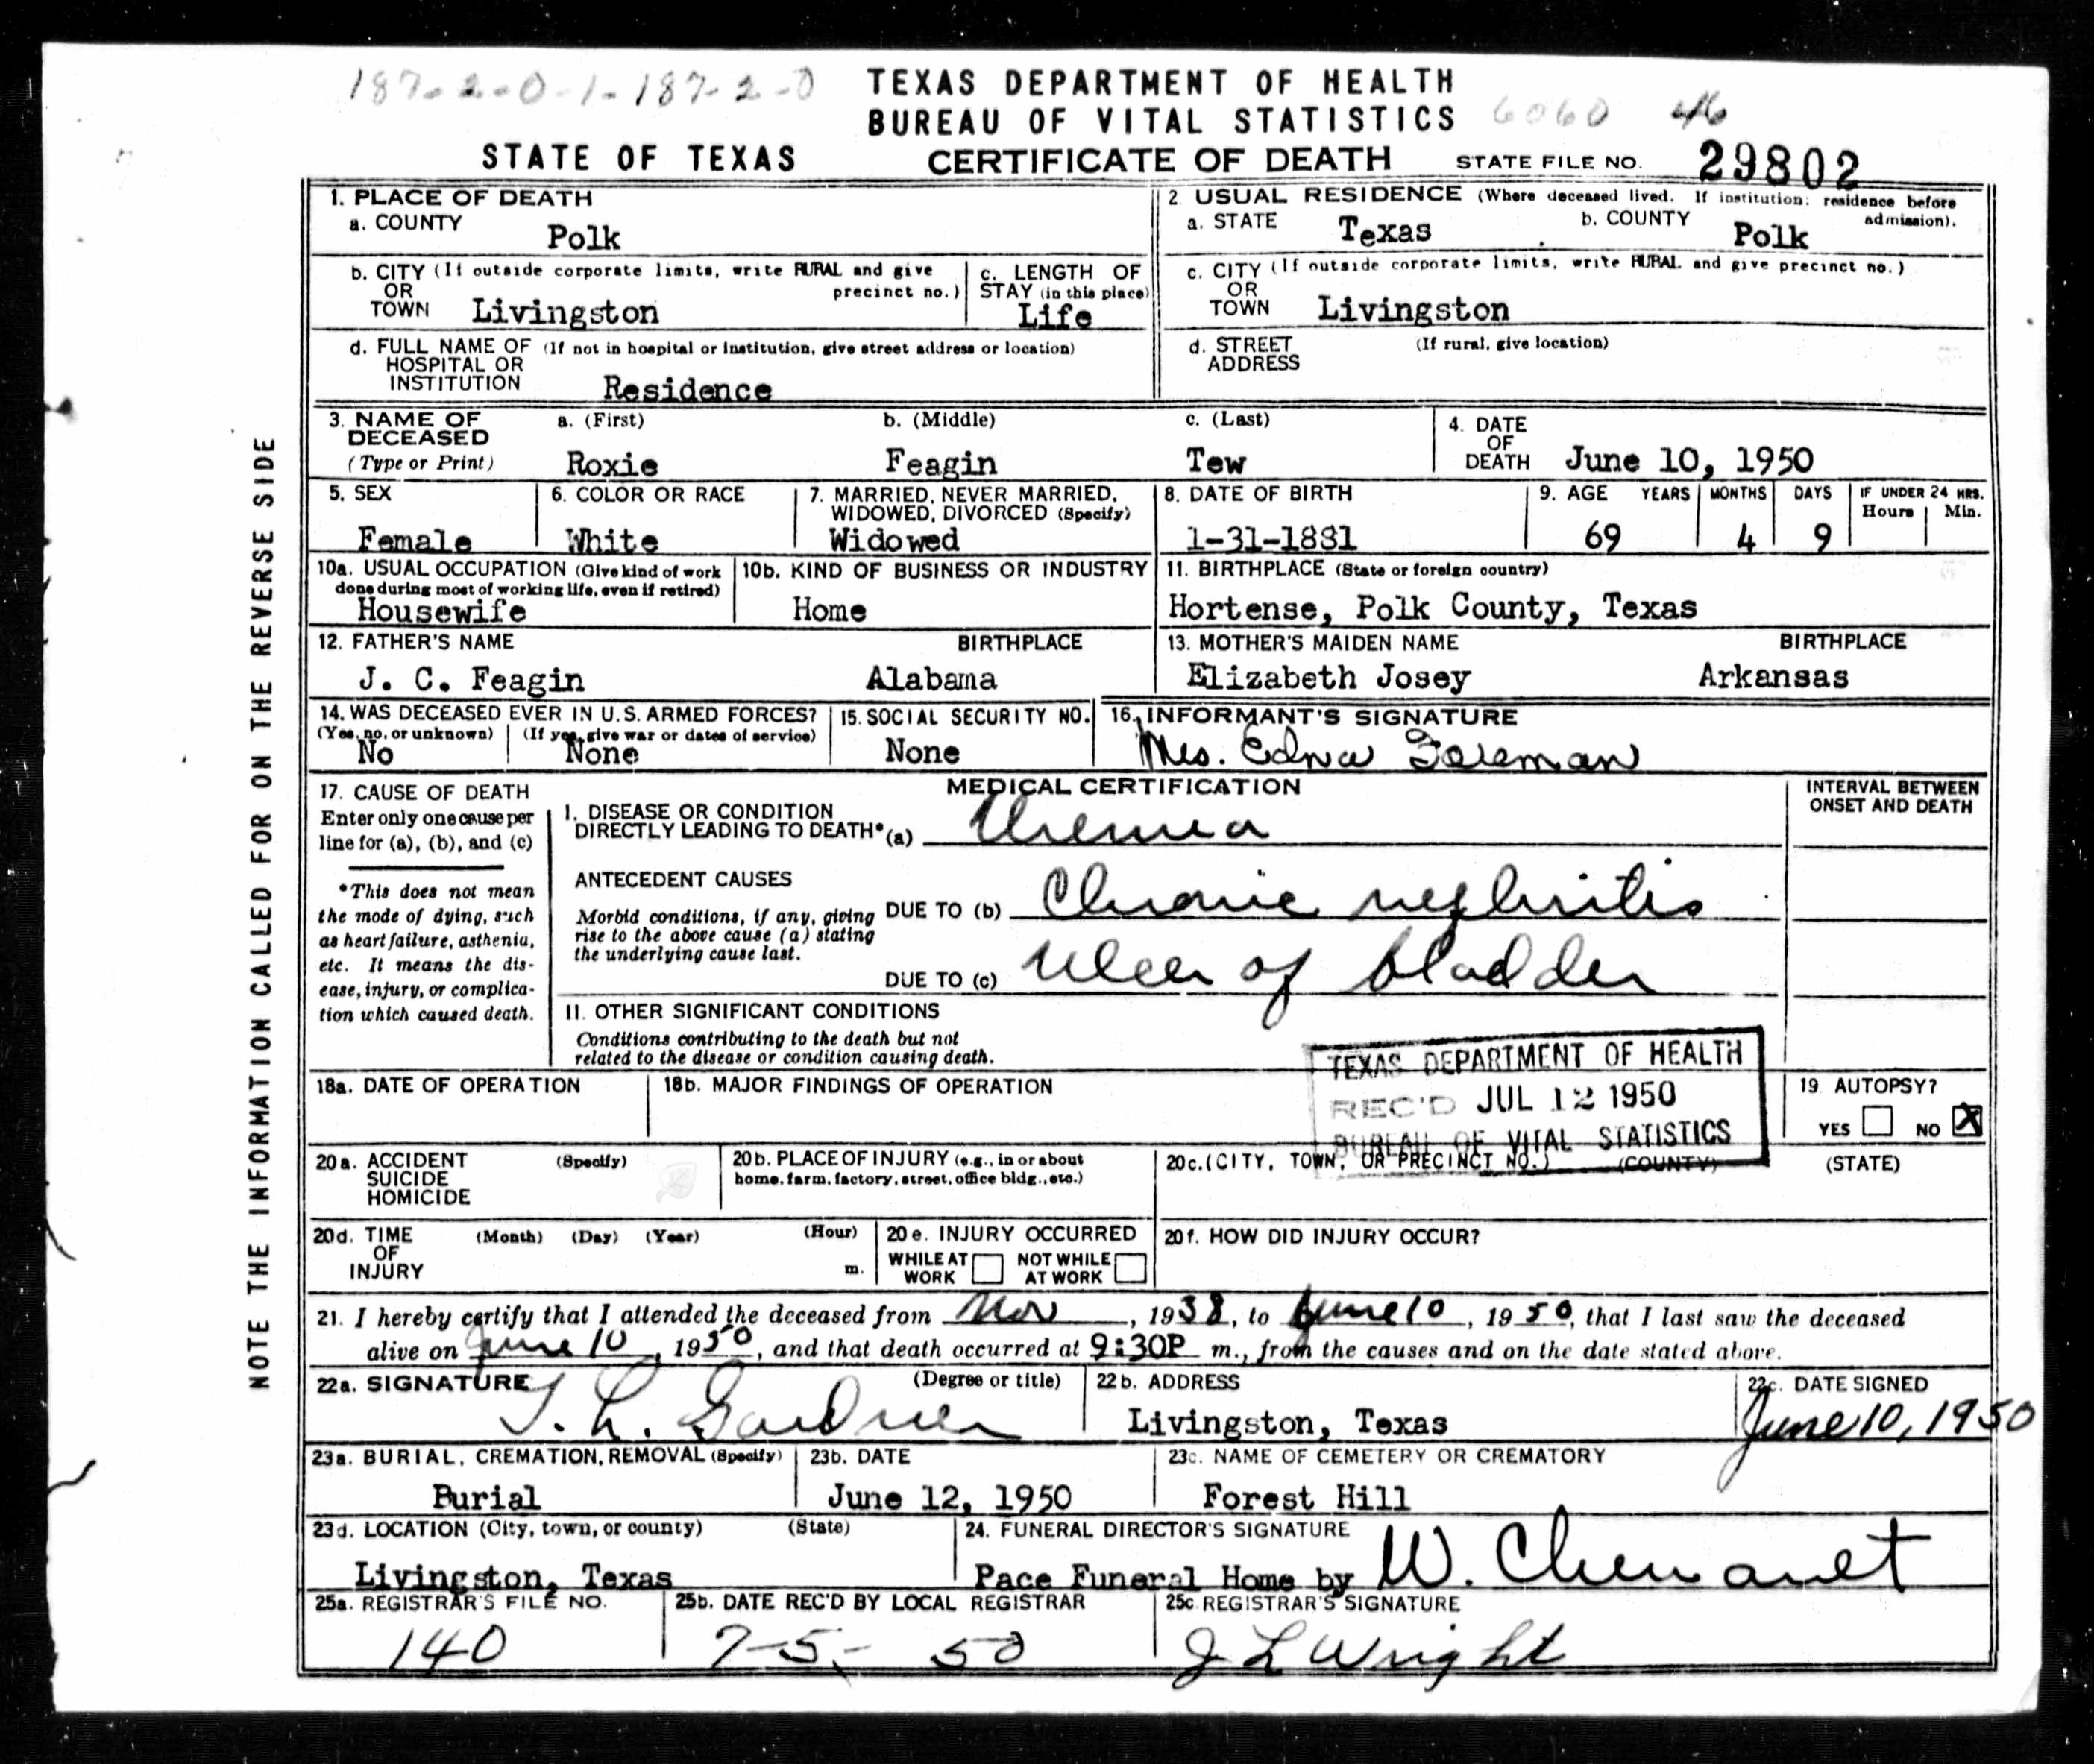 187-2-0-1-187-2-0
TEXAS DEPARTMENT OF HEALTH
BUREAU OF VITAL STATISTICS
6060 46
STATE OF TEXAS CERTIFICATE OF DEATH STATE FILE NO. 29802
NOTE THE INFORMATION CALLED FOR ON THE REVERSE SIDE
1. PLACE OF DEATH
a. COUNTY
Polk
2. USUAL RESIDENCE (Where deceased lived. If institution: residence before admission).
a. STATE Texas b. COUNTY Polk
b. CITY (If outside corporate limits, write RURAL and give precinct no.)
OR
TOWN Livingston
c. LENGTH OF
STAY (in this place)
Life
c. CITY (If outside corporate limits, write RURAL and give precinct no.)
OR
TOWN Livingston
d. FULL NAME OF (If not in hospital or institution, give street address or location)
HOSPITAL OR
INSTITUTION Residence
d. STREET (If rural, give location)
ADDRESS
3. NAME OF
DECEASED
(Type or Print)
a. (First) b. (Middle) c. (Last)
Roxie Feagin Tew
4. DATE
OF
DEATH June 10, 1950
5. SEX
Female
6. COLOR OR RACE
White
7. MARRIED, NEVER MARRIED,
WIDOWED, DIVORCED (Specify)
Widowed
8. DATE OF BIRTH
1-31-1881
9. AGE YEARS MONTHS DAYS IF UNDER 24 HRS.
Hours Min.
69 4 9
10a. USUAL OCCUPATION (Give kind of work
done during most of working life, even if retired)
Housewife
10b. KIND OF BUSINESS OR INDUSTRY
Home
11. BIRTHPLACE (State or foreign country)
Hortense, Polk County, Texas
12. FATHER'S NAME BIRTHPLACE
J. C. Feagin Alabama
13. MOTHER'S MAIDEN NAME BIRTHPLACE
Elizabeth Josey Arkansas
14. WAS DECEASED EVER IN U.S. ARMED FORCES?
(Yes, no, or unknown) (If yes, give war or dates of service)
No None
15. SOCIAL SECURITY NO.
None
16. INFORMANT'S SIGNATURE
Mrs. Edna Foreman
17. CAUSE OF DEATH
Enter only one cause per
line for (a), (b), and (c)
*This does not mean
the mode of dying, such
as heart failure, asthenia,
etc. It means the dis-
ease, injury, or complica-
tion which caused death.
MEDICAL CERTIFICATION
INTERVAL BETWEEN
ONSET AND DEATH
I. DISEASE OR CONDITION
DIRECTLY LEADING TO DEATH* (a) Uremia
ANTECEDENT CAUSES
Morbid conditions, if any, giving
rise to the above cause (a) stating
the underlying cause last.
DUE TO (b) Chronic nephritis
DUE TO (c) Ulcer of bladder
II. OTHER SIGNIFICANT CONDITIONS
Conditions contributing to the death but not
related to the disease or condition causing death.
TEXAS DEPARTMENT OF HEALTH
REC'D JUL 12 1950
BUREAU OF VITAL STATISTICS
18a. DATE OF OPERATION
18b. MAJOR FINDINGS OF OPERATION
19. AUTOPSY?
YES NO X
20a. ACCIDENT (Specify)
SUICIDE
HOMICIDE
20b. PLACE OF INJURY (e.g., in or about
home, farm, factory, street, office bldg., etc.)
20c. (CITY, TOWN, OR PRECINCT NO.) (COUNTY) (STATE)
20d. TIME (Month) (Day) (Year) (Hour)
OF
INJURY m.
20e. INJURY OCCURRED
WHILE AT WORK NOT WHILE AT WORK
20f. HOW DID INJURY OCCUR?
21. I hereby certify that I attended the deceased from Nov, 1938, to June 10, 1950, that I last saw the deceased
alive on June 10, 1950, and that death occurred at 9:30P m., from the causes and on the date stated above.
22a. SIGNATURE (Degree or title)
T. L. Gardner
22b. ADDRESS
Livingston, Texas
22c. DATE SIGNED
June 10, 1950
23a. BURIAL, CREMATION, REMOVAL (Specify)
Burial
23b. DATE
June 12, 1950
23c. NAME OF CEMETERY OR CREMATORY
Forest Hill
23d. LOCATION (City, town, or county) (State)
Livingston, Texas
24. FUNERAL DIRECTOR'S SIGNATURE
Pace Funeral Home by W.
25a. REGISTRAR'S FILE NO.
140
25b. DATE REC'D BY LOCAL REGISTRAR
7-5-50
25c. REGISTRAR'S SIGNATURE
J L Wright